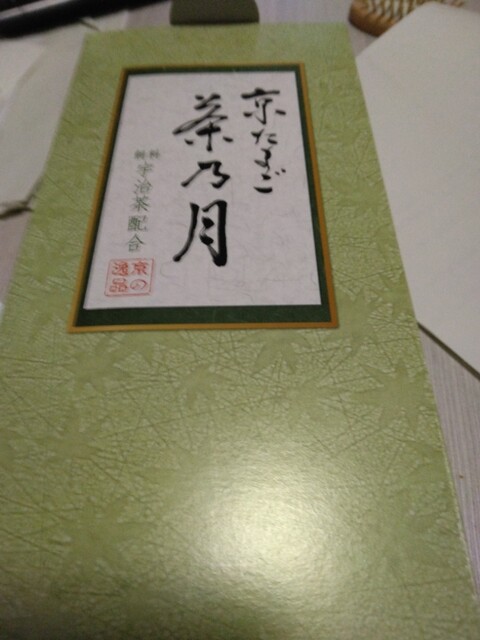 京たまご
茶乃月
特撰
宇治茶配合
京の
逸品